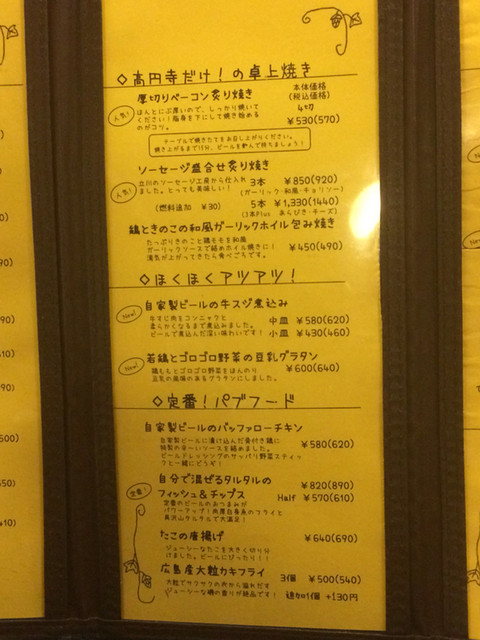 ◇高円寺だけ！の卓上焼き
厚切りベーコン炙り焼き
本体価格
(税込価格)
人気！
ほんとにぶ厚いので、しっかり焼いて
ください！脂身を下にして焼き始める
のがコツ。
4切
¥530(570)
テーブルで焼きたてをお召し上がりください。
焼き上がるまで15分、ビールを飲んで待ちましょう！
ソーセージ盛合せ炙り焼き
人気！
立川のソーセージ工房から仕入れ
ました。とっても美味しい！
3本 ¥850(920)
(ガーリック・和風・チョリソー)
(燃料追加 ¥30)
5本 ¥1,330(1440)
(3本Plus あらびき・チーズ)
鶏ときのこの和風ガーリックホイル包み焼き
たっぷりきのこと鶏モモを和風
ガーリックソースで絡めホイル焼きに！
湯気が上がってきたら食べごろです。
¥450(490)
◇ほくほくアツアツ！
New!
自家製ビールの牛スジ煮込み
牛すじ肉をコンニャクと
柔らかくなるまで煮込みました。
ビールで煮込んだ深い味わいです！
中皿 ¥580(620)
小皿 ¥430(460)
New!
若鶏とゴロゴロ野菜の豆乳グラタン
鶏ももとゴロゴロ野菜をほんのり
豆乳の風味のあるグラタンにしました。
¥600(640)
◇定番！パブフード
自家製ビールのバッファローチキン
自家製ビールに漬け込んだ骨付き鶏に
特製の辛〜いソースを絡めました。
ビールドレッシングのサッパリ野菜スティッ
クと一緒にどうぞ！
¥580(620)
定番！
自分で混ぜるタルタルの
フィッシュ&チップス
¥820(890)
Half ¥570(610)
定番のビールのおつまみが
パワーアップ！肉厚白身魚のフライと
具沢山タルタルで大満足！
たこの唐揚げ
¥640(690)
ジューシーなたこを大きく切り分
けました。ビールにぴったり！！
広島産大粒カキフライ
3個 ¥500(540)
大粒でサクサクの衣から溢れだす
ジューシーな磯の香りが絶品です！
追加1個 +130円